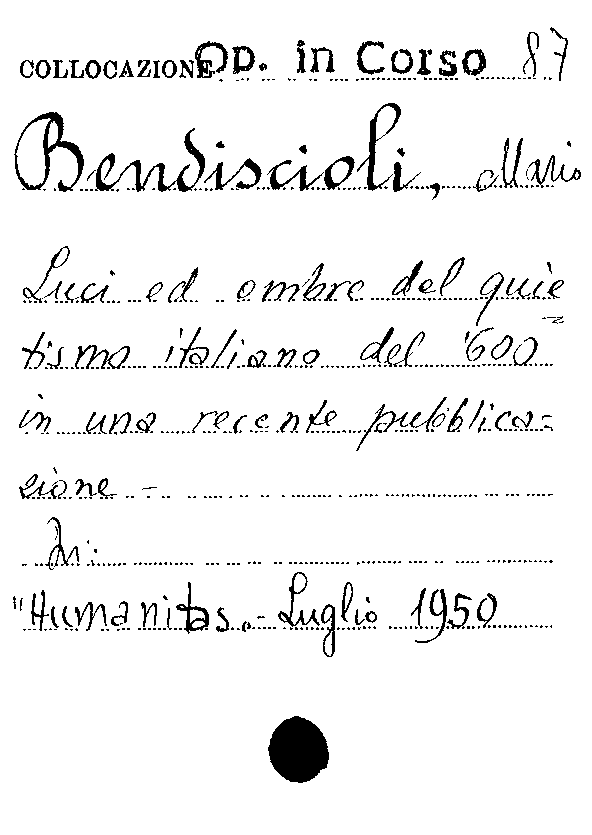 COLLOCAZIONE Op. in Corso 87
Bendiscioli, Mario
Luci ed ombre del quie=
tismo italiano del '600
in una recente pubblica=
zione -
In:
"Humanitas„ - Luglio 1950